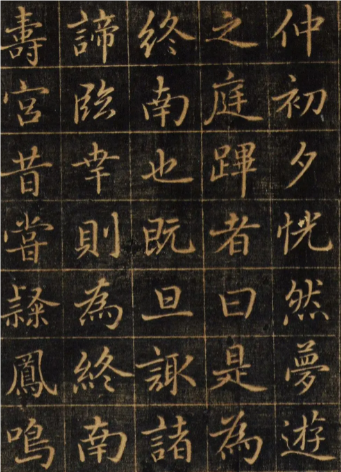 仲初夕恍然夢遊
之庭蹕者曰是為
終南也既旦諏諸
諦臨幸則為終南
壽宮昔嘗隸鳳鳴